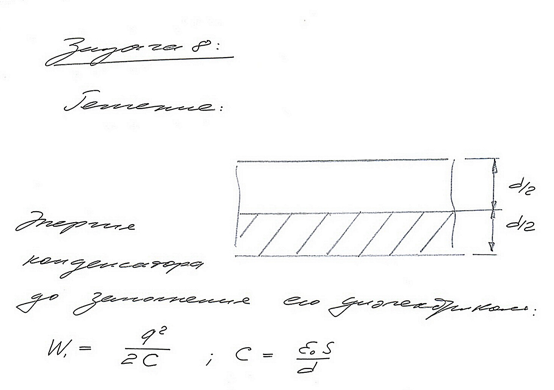 Задача 8:
Решение:
d/2
d/2
Энергия
конденсатора
до заполнения его диэлектриком:
W₁ = q²/2C ; C = ε₀S/d